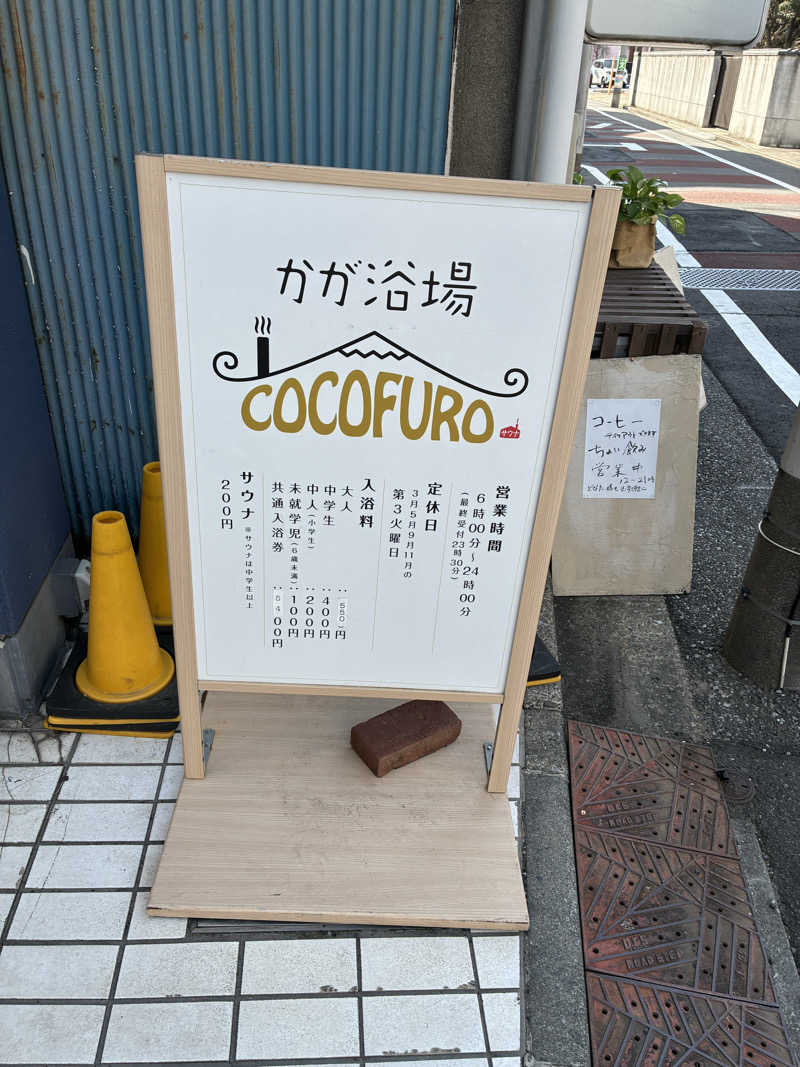 かが浴場
COCOFURO
サウナ
営業時間
6時00分～24時00分
(最終受付23時30分)
定休日
3月5月9月11月の
第3火曜日
入浴料
大人 : 550円
中学生 : 400円
中人(小学生) : 200円
未就学児(6歳未満) : 100円
共通入浴券 : 5400円
サウナ ※サウナは中学生以上
200円
コーヒー
テイクアウトできます
ちょい飲み
営業中
12-21時
ROAD STEP
ROAD STEP